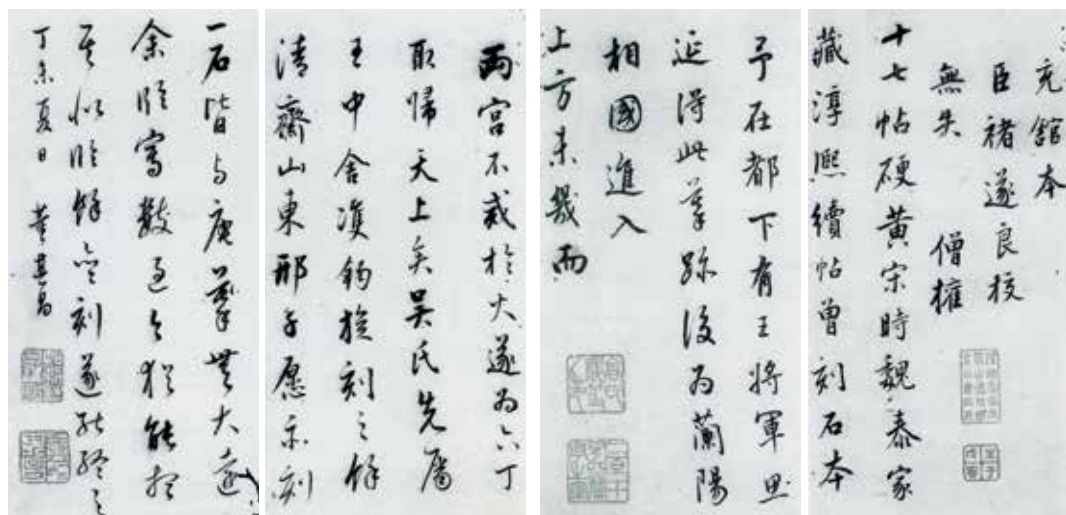 充館本
臣褚遂良校
無失 僧權
十七帖硬黃宋時魏泰家
藏淳熙續帖曾刻石本
予在都下有王將軍思
延得此摹跡後為蘭陽
相國進入
上方未幾而
兩宮不戒於火遂為六丁
取歸天上矣吳氏先屬
王中舍鈎摹刻之餘
清齋山東邢子愿亦刻
一石皆与唐摹無大遠
余臨寫數過今猶能想
其似臨餘刻遂
丁未夏日 董其昌